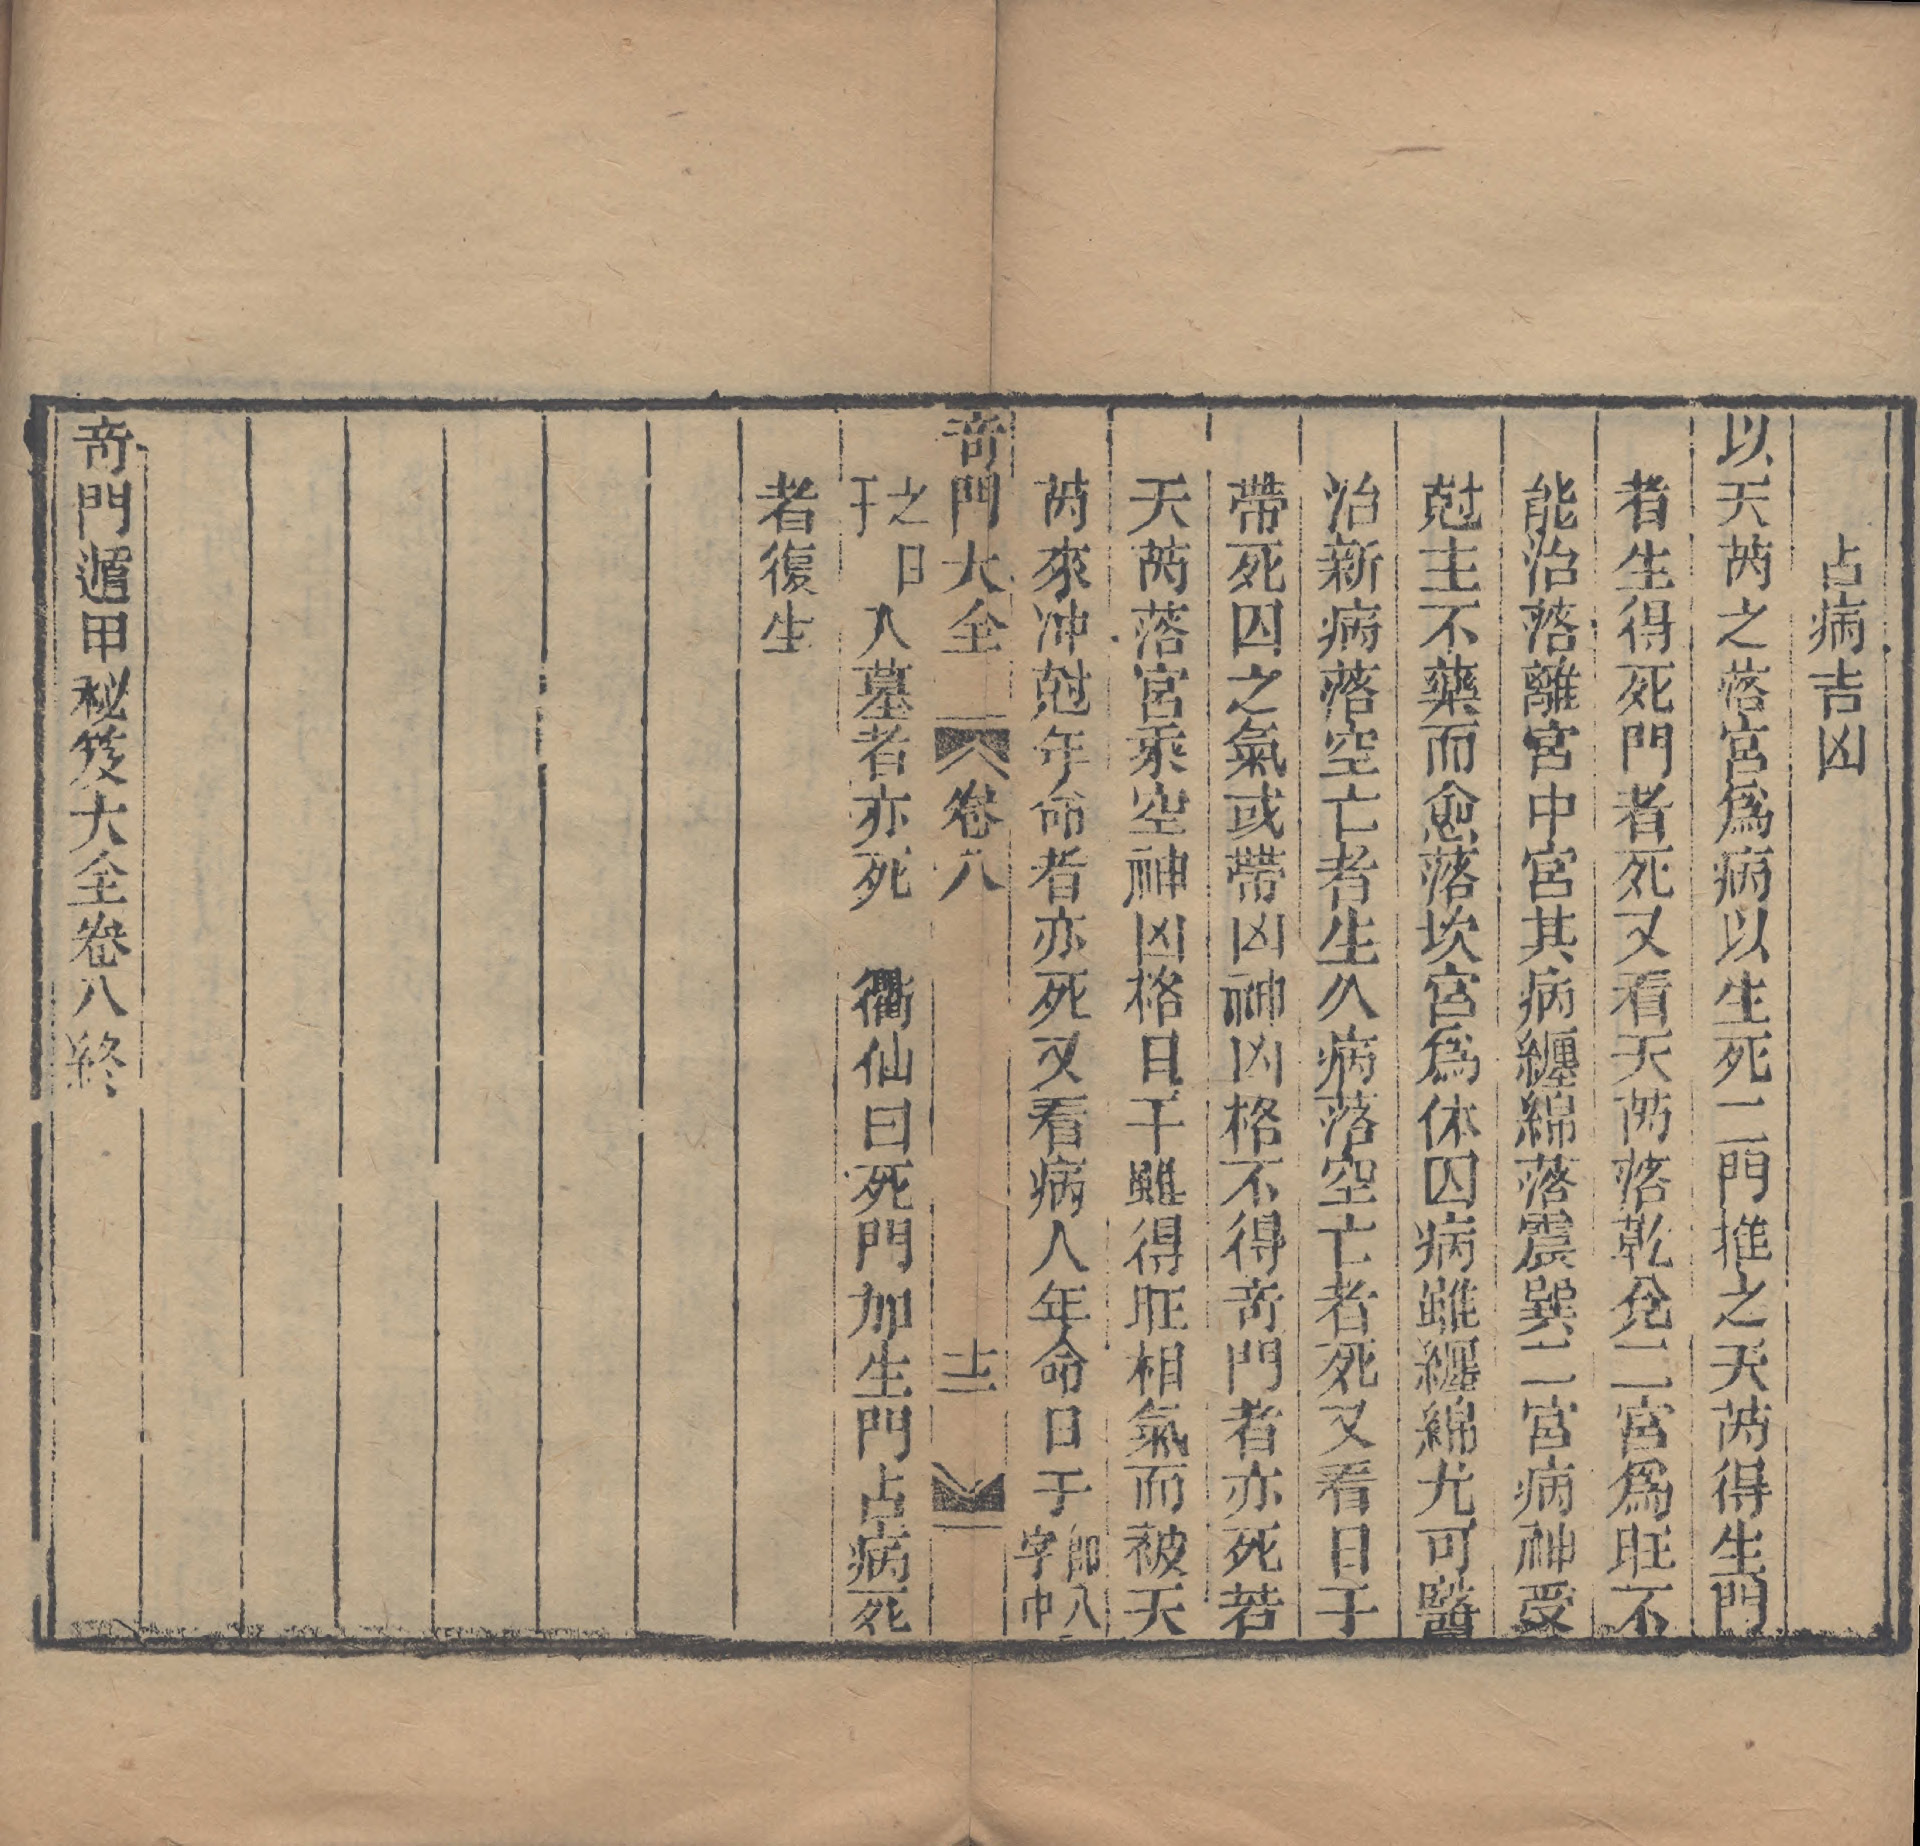 占病吉凶
以天芮之落宮爲病以生死二門推之天芮得生門
者生得死門者死又看天芮落乾兌二宮爲旺不
能治落離宮中宮其病纏綿落震巽二宮病神受
尅主不藥而愈落坎宮爲休囚病雖纏綿尤可醫
治新病落空亡者生久病落空亡者死又看日干
帶死囚之氣或帶凶神凶格不得奇門者亦死若
天芮落宮乘空神凶格日干雖得旺相氣而被天
芮來冲尅年命者亦死又看病人年命日于卽八字中
奇門大全 卷八 十二
之日干入墓者亦死 衢仙曰死門加生門占病死
者復生
奇門遁甲秘笈大全卷八終